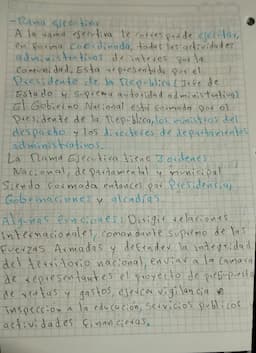 - Rama ejecutiva
A la rama ejecutiva le corresponde ejecutar,
en forma coordinada, todas las actividades
administrativas de interes para la
comunidad, Esta representada por el
Presidente de la Republica (Jefe de
Estado y suprema autoridad administrativa)
El Gobierno Nacional está formado por el
Presidente de la Republica, los ministros del
despacho y los directores de departamentos
administrativos.
La Rama Ejecutiva tiene 3 ordenes
Nacional, departamental y municipal
Siendo formada entonces por Presidencia,
Gobernaciones y alcaldias.
Algunas Funciones: Dirigir relaciones
Internacionales, comandante supremo de las
Fuerzas Armadas y defender la integridad
del territorio nacional, enviar a la camara
de representantes el proyecto de presupuesto
de rentas y gastos, ejercer vigilancia e
inspección a la educación, servicios publicos
actividades financieras.